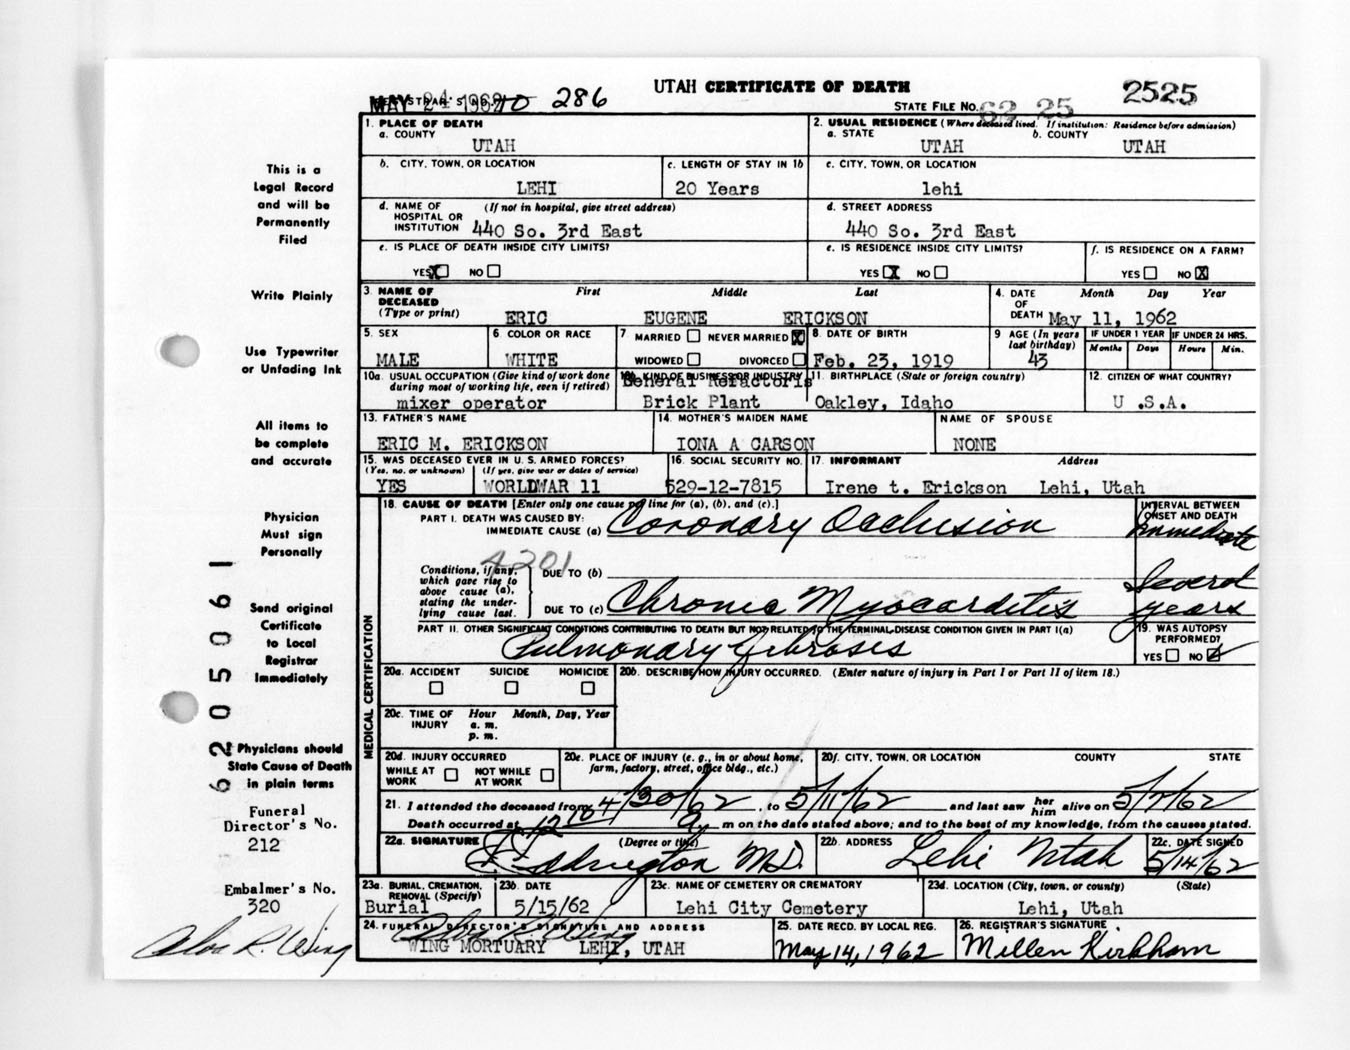 UTAH CERTIFICATE OF DEATH
MAY 24 1962 286
STATE FILE NO. 62 25 2525
1. PLACE OF DEATH
a. COUNTY
UTAH
2. USUAL RESIDENCE (Where deceased lived. If institution: Residence before admission)
a. STATE b. COUNTY
UTAH UTAH
b. CITY, TOWN, OR LOCATION
LEHI
c. LENGTH OF STAY IN 1b
20 Years
c. CITY, TOWN, OR LOCATION
lehi
d. NAME OF HOSPITAL OR INSTITUTION (If not in hospital, give street address)
440 So. 3rd East
d. STREET ADDRESS
440 So. 3rd East
e. IS PLACE OF DEATH INSIDE CITY LIMITS?
YES X NO
e. IS RESIDENCE INSIDE CITY LIMITS?
YES X NO
f. IS RESIDENCE ON A FARM?
YES NO X
3. NAME OF DECEASED (Type or print) First Middle Last
ERIC EUGENE ERICKSON
4. DATE OF DEATH Month Day Year
May 11, 1962
5. SEX
MALE
6. COLOR OR RACE
WHITE
7 MARRIED NEVER MARRIED X
WIDOWED DIVORCED
8. DATE OF BIRTH
Feb. 23, 1919
9 AGE (In years last birthday)
43
IF UNDER 1 YEAR IF UNDER 24 HRS.
Months Days Hours Min.
10a. USUAL OCCUPATION (Give kind of work done during most of working life, even if retired)
mixer operator
10b. KIND OF BUSINESS OR INDUSTRY
General Refactoris
Brick Plant
11. BIRTHPLACE (State or foreign country)
Oakley, Idaho
12. CITIZEN OF WHAT COUNTRY?
U .S.A.
13. FATHER'S NAME
ERIC M. ERICKSON
14. MOTHER'S MAIDEN NAME
IONA A CARSON
NAME OF SPOUSE
NONE
15. WAS DECEASED EVER IN U.S. ARMED FORCES?
(Yes, no, or unknown) (If yes, give war or dates of service)
YES WORLDWAR 11
16. SOCIAL SECURITY NO.
529-12-7815
17. INFORMANT Address
Irene t. Erickson Lehi, Utah
MEDICAL CERTIFICATION
18. CAUSE OF DEATH [Enter only one cause per line for (a), (b), and (c).]
PART I. DEATH WAS CAUSED BY:
IMMEDIATE CAUSE (a) Coronary Occlusion
INTERVAL BETWEEN ONSET AND DEATH
Immediate
4201
Conditions, if any, which gave rise to above cause (a), stating the underlying cause last.
DUE TO (b)
DUE TO (c) Chronic Myocarditis
Several years
PART II. OTHER SIGNIFICANT CONDITIONS CONTRIBUTING TO DEATH BUT NOT RELATED TO THE TERMINAL DISEASE CONDITION GIVEN IN PART I(a)
Pulmonary fibrosis
19. WAS AUTOPSY PERFORMED?
YES NO
20a. ACCIDENT SUICIDE HOMICIDE
20b. DESCRIBE HOW INJURY OCCURRED. (Enter nature of injury in Part I or Part II of item 18.)
20c. TIME OF INJURY Hour Month, Day, Year
a. m.
p. m.
20d. INJURY OCCURRED
WHILE AT WORK NOT WHILE AT WORK
20e. PLACE OF INJURY (e. g., in or about home, farm, factory, street, office bldg., etc.)
20f. CITY, TOWN, OR LOCATION COUNTY STATE
21. I attended the deceased from 4/30/62, to 5/11/62 and last saw her him alive on 5/7/62
Death occurred at 12 10 a m on the date stated above; and to the best of my knowledge, from the causes stated.
22a. SIGNATURE (Degree or title)
Eddington M.D.
22b. ADDRESS
Lehi Utah
22c. DATE SIGNED
5/14/62
23a. BURIAL, CREMATION, REMOVAL (Specify)
Burial
23b. DATE
5/15/62
23c. NAME OF CEMETERY OR CREMATORY
Lehi City Cemetery
23d. LOCATION (City, town, or county) (State)
Lehi, Utah
24. FUNERAL DIRECTOR'S SIGNATURE AND ADDRESS
WING MORTUARY LEHI, UTAH
25. DATE RECD. BY LOCAL REG.
May 14, 1962
26. REGISTRAR'S SIGNATURE
Millen Kirkham
This is a
Legal Record
and will be
Permanently
Filed
Write Plainly
Use Typewriter
or Unfading Ink
All items to
be complete
and accurate
Physician
Must sign
Personally
Send original
Certificate
to Local
Registrar
Immediately
Physicians should
State Cause of Death
in plain terms
Funeral
Director's No.
212
Embalmer's No.
320
6205061